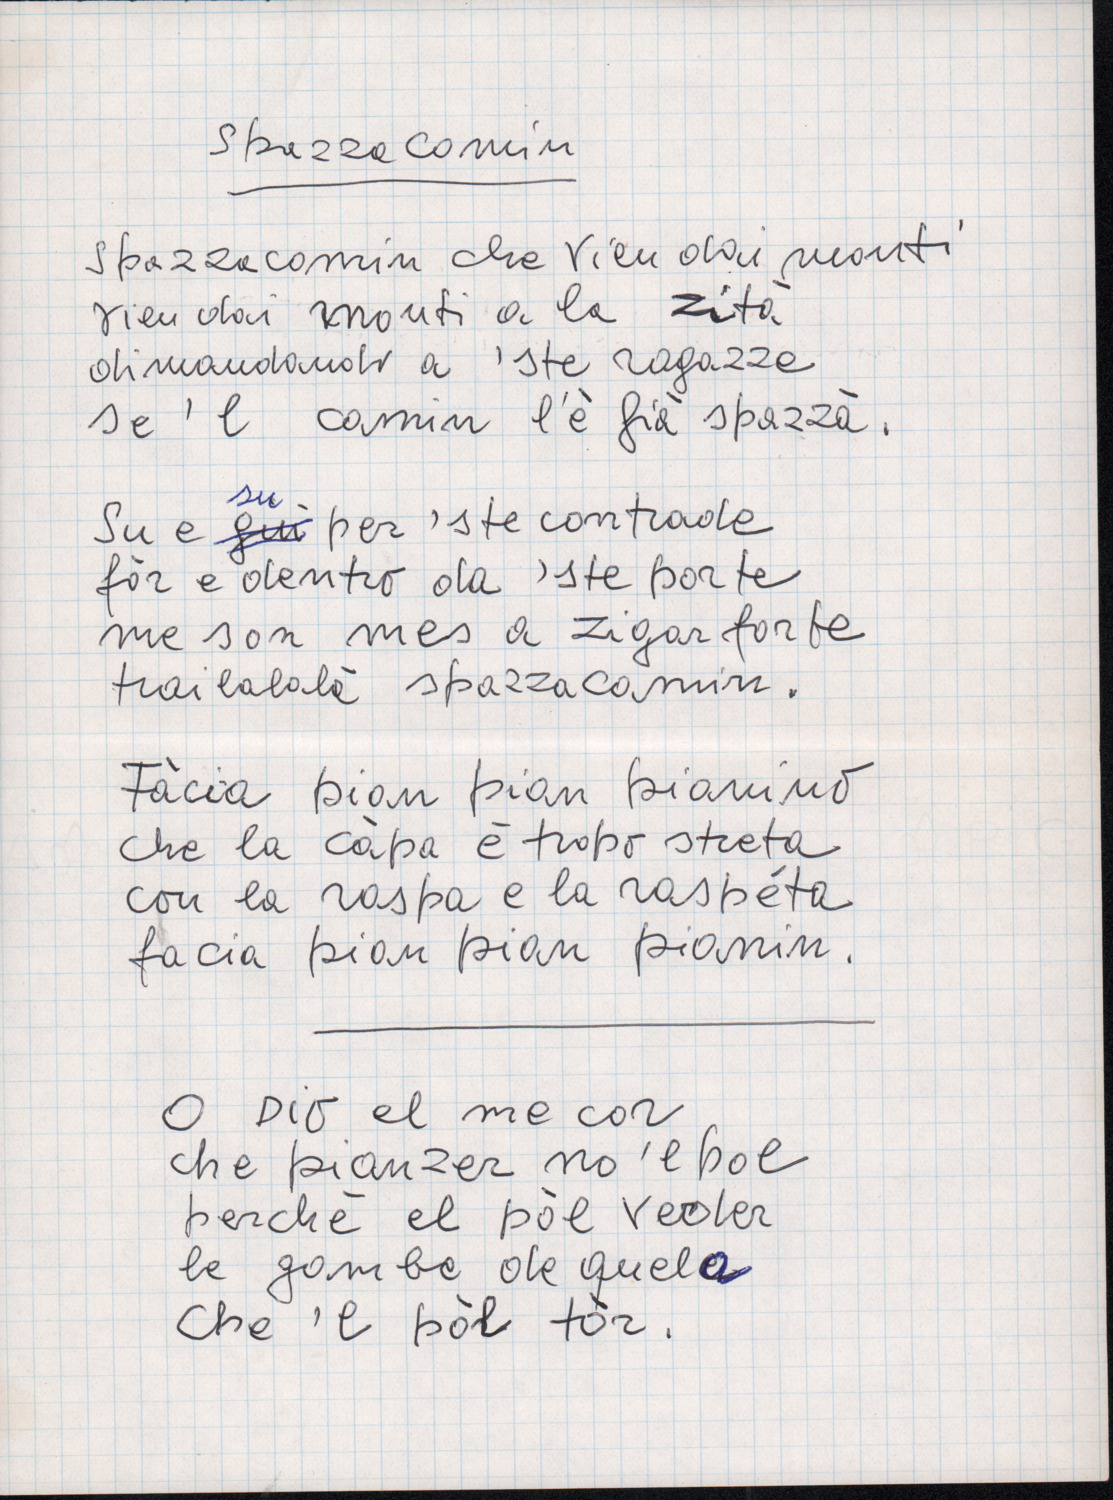 Spazzacamin
Spazzacamin che vien dai monti
vien dai monti a la zità
dimandando a 'ste ragazze
se 'l camin l'è già spazzà.
su
Su e giù per 'ste contrade
fòr e dentro da 'ste porte
me son mes a zigar forte
trailalalà spazzacamin.
Fàcia pian pian pianino
che la càpa è tropo streta
con la raspa e la raspéta
facia pian pian pianin.
O Dio el me cor
che pianzer no 'l pol
perchè el pòl veder
le gambe de quela
Che 'l pòl tòr.